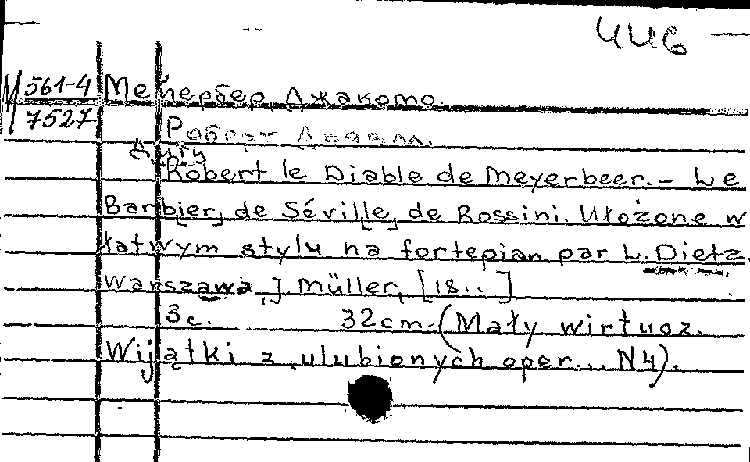 ЧИБ
М 561-4 Мейербер, Джакомо.
7527 Роберт Дьявол.
Дитц
Robert le Diable de Meyerbeer. – Le
Barbier de Séville, de Rossini. Ułożone w
łatwym stylu na fortepian par L. Dietz.
Warszawa, J. Müller, [18..]
3c. 32cm. (Mały wirtuoz.
Wijątki z ulubionych oper... N4).